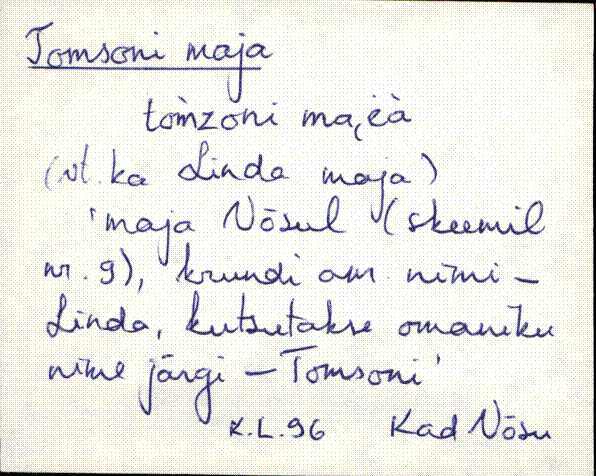 Tomsoni maja
tom̀zoni ma,èà
(vt. ka Linda maja)
'maja Nõsul (skeemil
nr. 9), krundi am. nimi –
Linda, kutsutakse omaniku
nime järgi – Tomsoni'
K.L.96 Kad Nõsu